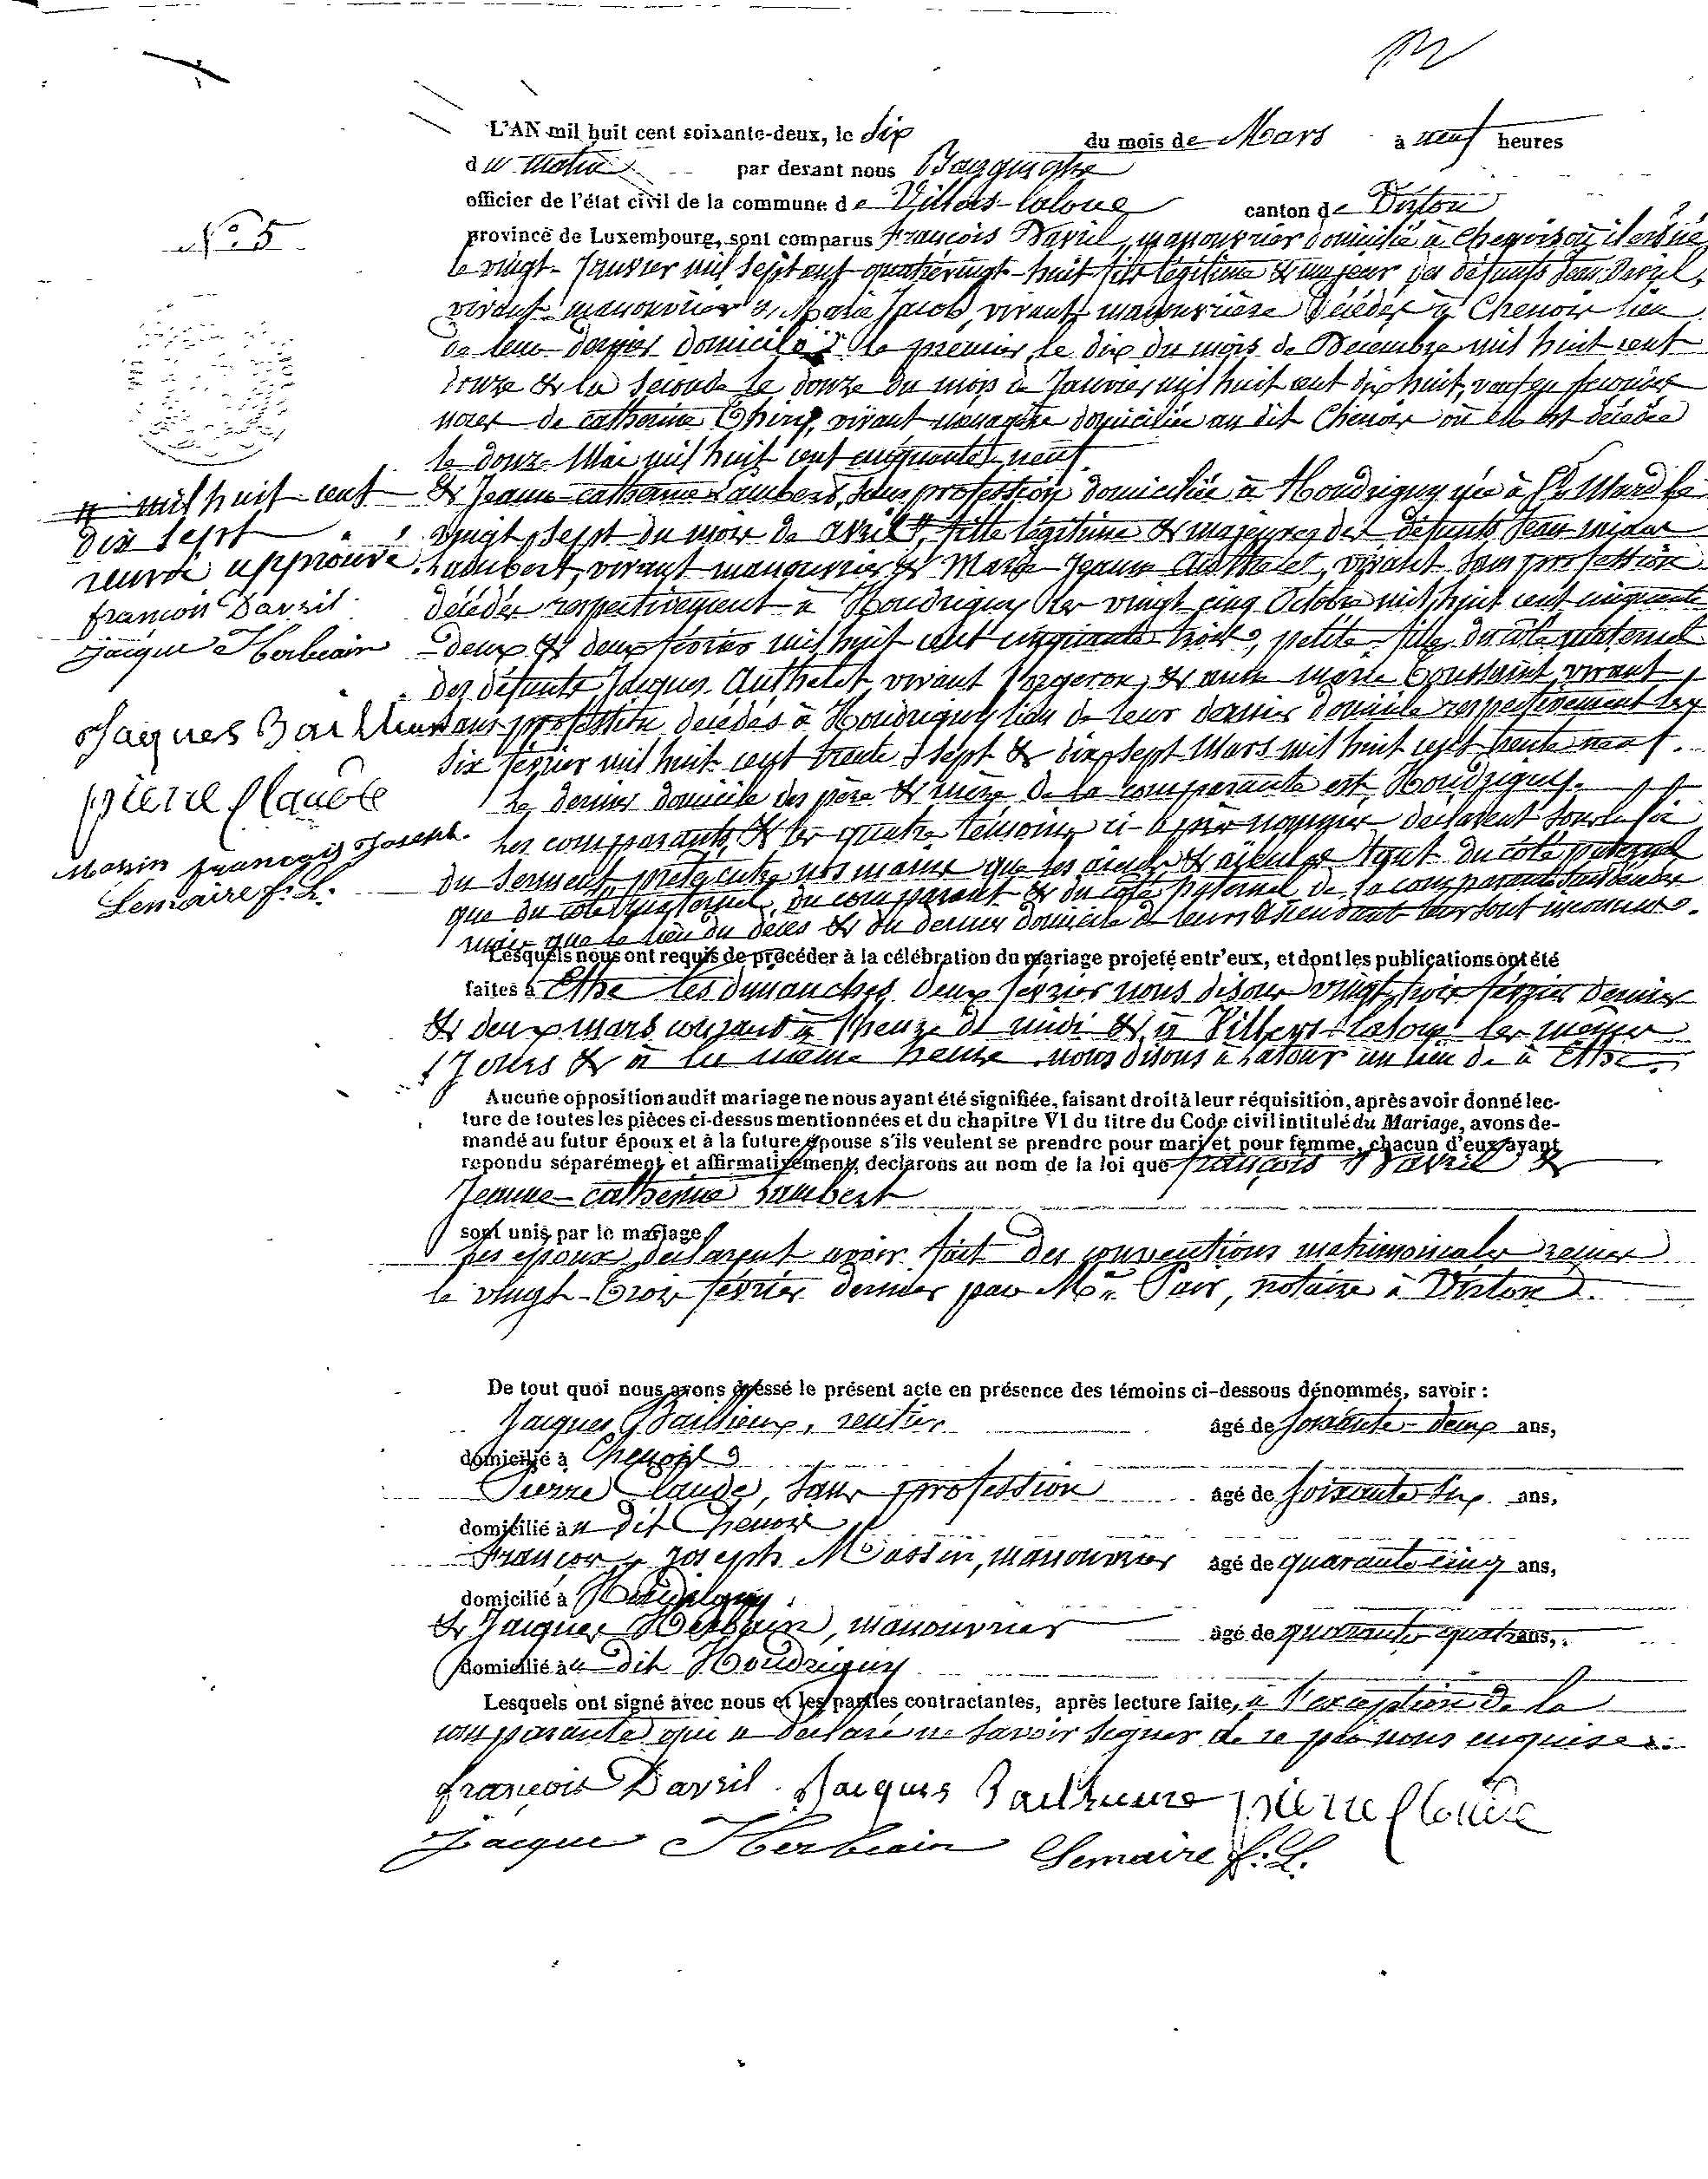 L'AN mil huit cent soixante-deux, le dix du mois de Mars à neuf heures
du matin par devant nous Bourgmestre
officier de l'état civil de la commune de Villers-laloue canton de Virton
N° 5
province de Luxembourg, sont comparus François Davril, manouvrier domicilié à Chenois où il est né
le vingt Janvier mil sept cent quatrevingt-huit fils légitime & majeur des défunts Jean Davril,
vivant manouvrier & Marie Jacob, vivant manouvrière décédés à Chenois lieu
de leur dernier domicile le premier, le dix du mois de Decembre mil huit cent
douze & la seconde le douze du mois de Janvier mil huit cent dix huit, veuf en
noces de catherine Thiry, vivant menagère domiciliée au dit Chenois où elle est décédée
le douze Mai mil huit cent cinquante neuf.
& Jeanne-catherine Lambert, sans profession domiciliée à Houdrigny née à St Mard le
vingt sept du mois de avril # fille légitime & majeure des défunts Jean
Lambert, vivant manouvrier & Marie Jeanne Authelet, vivant sans profession
décédés respectivement à Houdrigny les vingt cinq Octobre mil huit cent cinquante
deux & deux février mil huit cent cinquante trois, petite fille du côté maternel
des défunts Jacques Authelet vivant forgeron & anne marie Toussaint vivant
sans profession décédés à Houdrigny lieu de leur dernier domicile respectivement les
six février mil huit cent trente sept & dix sept Mars mil huit cent trente neuf.
Le dernier domicile des père & mère de la comparante est Houdrigny.
Les comparants & les quatre témoins ci-après nommés déclarent sous la foi
du serment prêté entre nos mains que les aieuls & aieules tant du côté paternel
que du côté maternel du comparant & du côté paternel de la comparante sont décédés
mais que le lieu du décès & du dernier domicile de leurs ascendants leur sont inconnus.
# mil huit cent
dix sept
renvoi approuvé.
françois Davril
Jacque Herbeain
Jaques Baillieux
pierre Claude
Massin francois Joseph
Lemaire f. L.
Lesquels nous ont requis de procéder à la célébration du mariage projeté entr'eux, et dont les publications ont été
faites à Ethe les dimanches deux février nous disons vingt trois février dernier
& deux mars courant à l'heure de midi & à Villers-laloue les mêmes
Jours & à la même heure nous disons à Latour au lieu de à Ethe.
Aucune opposition audit mariage ne nous ayant été signifiée, faisant droit à leur réquisition, après avoir donné lec-
ture de toutes les pièces ci-dessus mentionnées et du chapitre VI du titre du Code civil intitulé du Mariage, avons de-
mandé au futur époux et à la future épouse s'ils veulent se prendre pour mari et pour femme, chacun d'eux ayant
repondu séparément et affirmativement, declarons au nom de la loi que françois Davril &
Jeanne-catherine Lambert
sont unis par le mariage
Les epoux declarent avoir fait des conventions matrimoniales
le vingt-Trois février dernier par Me notaire à Virton.
De tout quoi nous avons dressé le présent acte en présence des témoins ci-dessous dénommés, savoir :
Jacques Baillieux, rentier âgé de soixante-deux ans,
domicilié à Chenois
Pierre Claude, sans profession âgé de soixante six ans,
domicilié au dit Chenois
François Joseph Massin, manouvrier âgé de quarante cinq ans,
domicilié à Houdrigny
& Jacques Herbeain, manouvrier âgé de quarante quatre ans,
domicilié au dit Houdrigny
Lesquels ont signé avec nous et les parties contractantes, après lecture faite, à l'exception de la
comparante qui a declaré ne savoir signer de ce par nous enquise.
françois Davril. Jacques Baillieux pierre Claude
Jacque Herbeain Lemaire f. L.